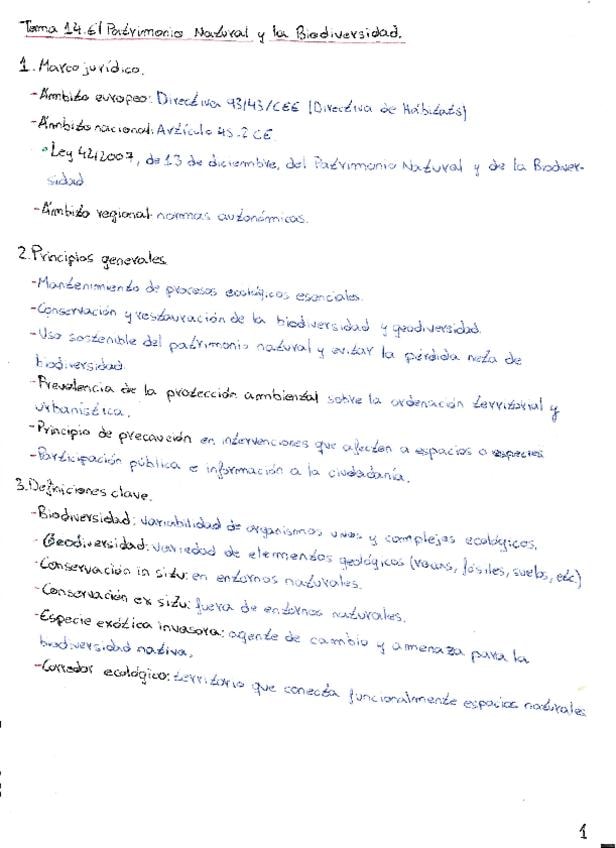 Tema 14. El Patrimonio Natural y la Biodiversidad.
1. Marco jurídico.
- Ámbito europeo: Directiva 93/43/CEE (Directiva de Hábitats)
- Ámbito nacional: Artículo 45.2 CE.
• Ley 42/2007, de 13 de diciembre, del Patrimonio Natural y de la Biodiver-
sidad
- Ámbito regional: normas autonómicas.
2. Principios generales
- Mantenimiento de procesos ecológicos esenciales.
- Conservación y restauración de la biodiversidad y geodiversidad.
- Uso sostenible del patrimonio natural y evitar la pérdida neta de
biodiversidad.
- Prevalencia de la protección ambiental sobre la ordenación territorial y
urbanística.
- Principio de precaución en intervenciones que afecten a espacios o especies
- Participación pública e información a la ciudadanía.
3. Definiciones clave.
- Biodiversidad: variabilidad de organismos vivos y complejos ecológicos.
- Geodiversidad: variedad de elementos geológicos (rocas, fósiles, suelos, etc)
- Conservación in situ: en entornos naturales.
- Conservación ex situ: fuera de entornos naturales.
- Especie exótica invasora: agente de cambio y amenaza para la
biodiversidad nativa.
- Corredor ecológico: territorio que conecta funcionalmente espacios naturales
1